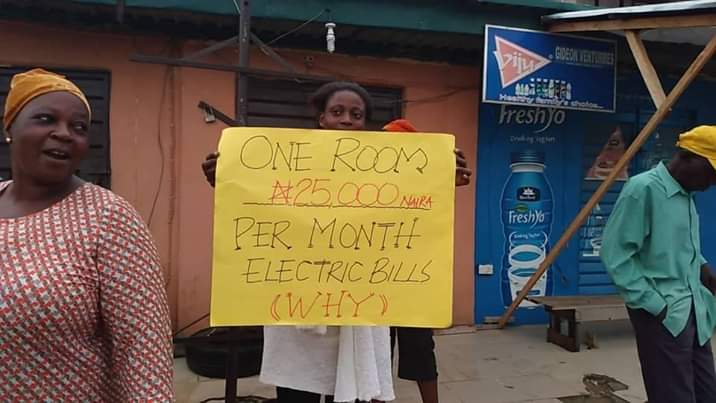 ONE ROOM
₦25,000 NAIRA
PER MONTH
ELECTRIC BILLS
(WHY)
Biju
GIDEON VENTURES
Healthy family's choice...
FreshYo
Drinking Yoghurt
FreshYo